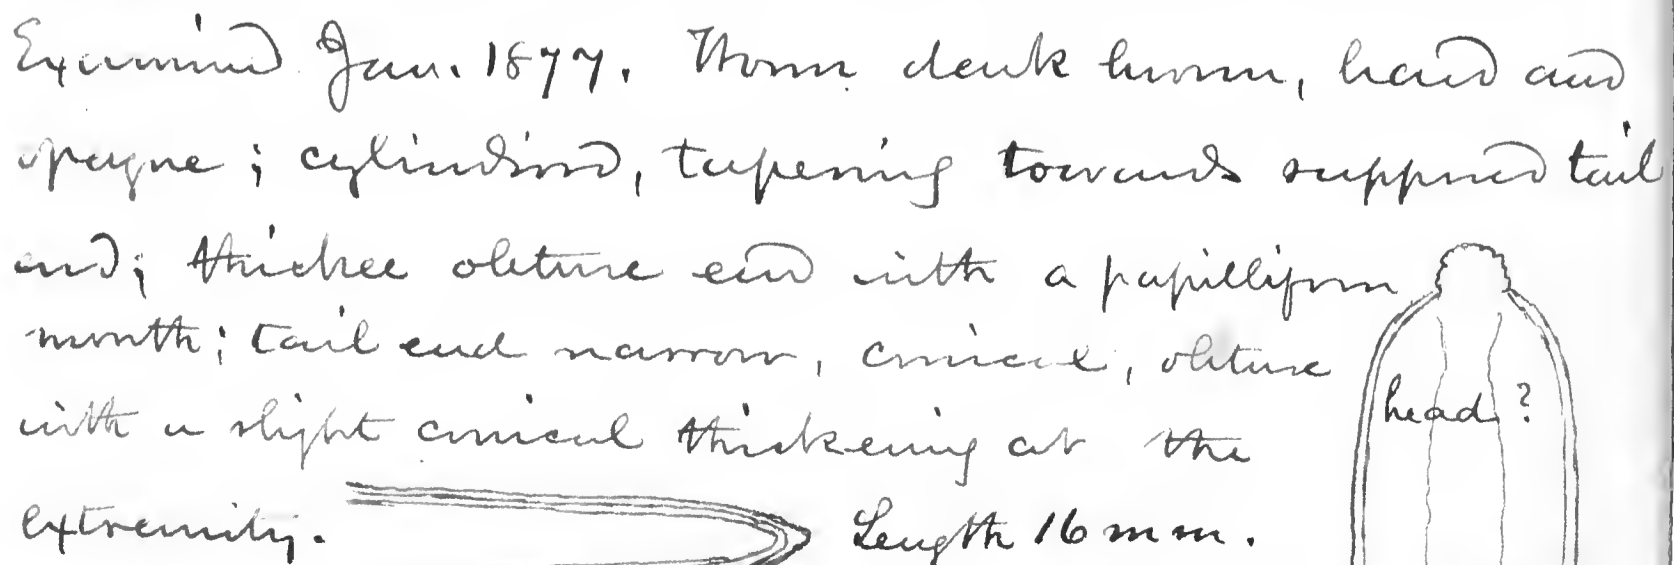 Examined Jan. 1877. Worm dark brown, hard and
opaque; cylindrical, tapering towards supposed tail
end; thicker obtuse end with a papilliform
mouth; tail end narrow, conical, obtuse
with a slight conical thickening at the
extremity.
Length 16 mm.
head?